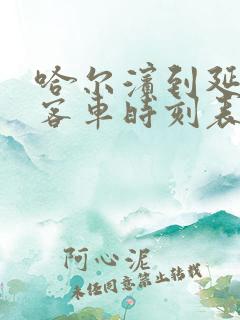 哈尔滨到延
客车时刻表
阿心泥
未经同意禁止转载